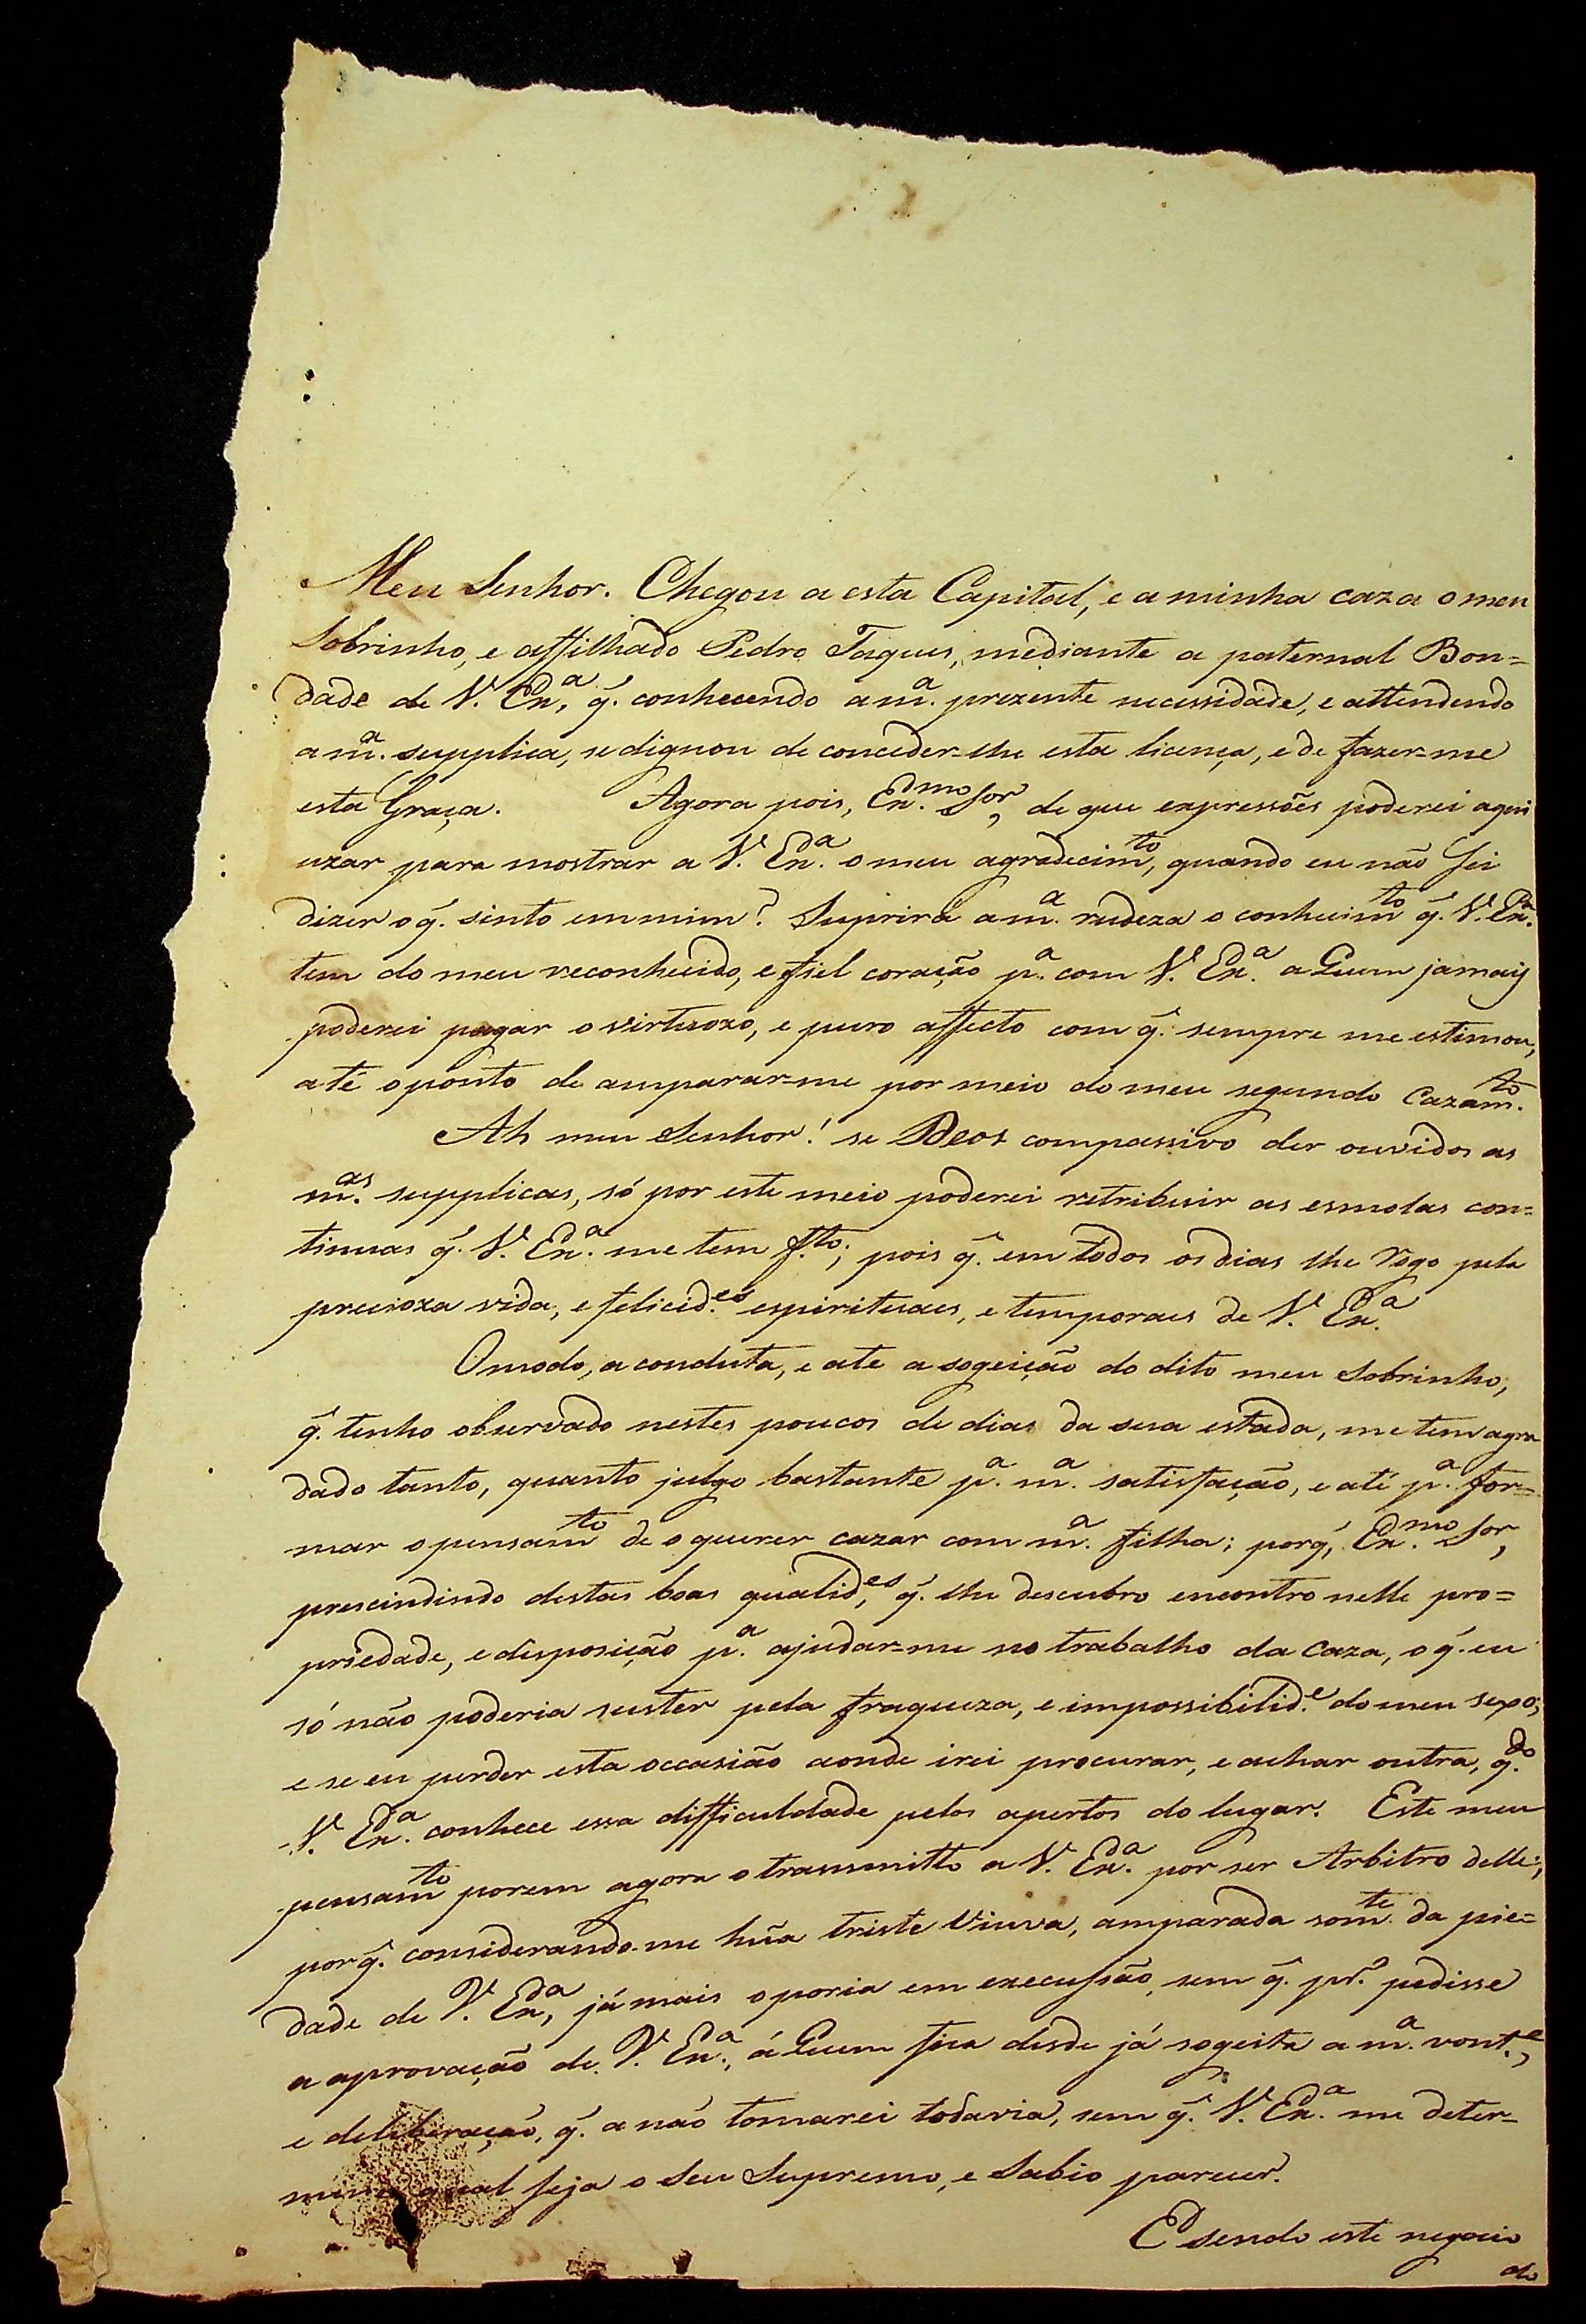 Meu Senhor. Chegou a esta Capital, e a minha caza o meu
Sobrinho, e affilhado Pedro Taques, mediante a paternal Bon=
dade de V. Exa, q̃. conhecendo a mª. prezente necessidade, e attendendo
a mª. supplica, se dignou de conceder-lhe esta licença, e de fazer=me
esta Graça. Agora pois, Ex.mo Sor, de que expressões poderei aqui
uzar para mostrar a V. Exª. o meu agradecimto, quando eu não sei
dizer o q̃. sinto em mim? Suprirá a mª. rudeza o conhecimto q̃. V. Exª.
tem do meu reconhecido, e fiel coração pª. com V. Exª. a Quem jamais
poderei pagar o virtuozo, e puro affecto com q̃. sempre me estimou,
até o ponto de amparar-me por meio do meu segundo Cazamto.
Ah meu Senhor! se Deos compassivo der ouvidos as
mas. supplicas, só por este meio poderei retribuir as esmolas con=
tinuas q̃. V. Exª. me tem f.to; pois q̃. em todos os dias lhe rogo pela
precioza vida, e felicid.es espirituaes, e temporaes de V. Exª.
O modo, a conduta, e ate a sogeição do dito meu Sobrinho,
q̃. tenho observado nestes poucos de dias da sua estada, me tem agra
dado tanto, quanto julgo bastante pª. mª. satisfação, e até pª. for=
mar o pensamto de o querer cazar com mª. filha; porq̃, Ex.mo Sor,
prescindindo destas boas qualid.es, q̃. lhe descubro encontro nelle pro=
priedade, e disposição pª. ajudar=me no trabalho da caza, o q̃. eu
só não poderia suster pela fraqueza, e impossibilid.e do meu sexo;
e se eu perder esta occasião aonde irei procurar, e achar outra, q.do
V. Exª. conhece essa difficuldade pelos apertos do lugar. Este meu
pensamto porem agora o transmitto a V. Exª. por ser Arbitro delle;
porq̃. considerando-me hũa triste Viuva, amparada somte. da pie=
dade de V. Exª, já mais o poria em execussão, sem q̃. pr.º pedisse
a aprovação de V. Exª., á Quem fica desde já sogeita a mª. vont.e,
e deliberação, q̃. a não tomarei todavia, sem q̃. V. Exª. me deter=
mine qual seja o Seu Supremo, e Sabio parecer.
E sendo este negocio
do